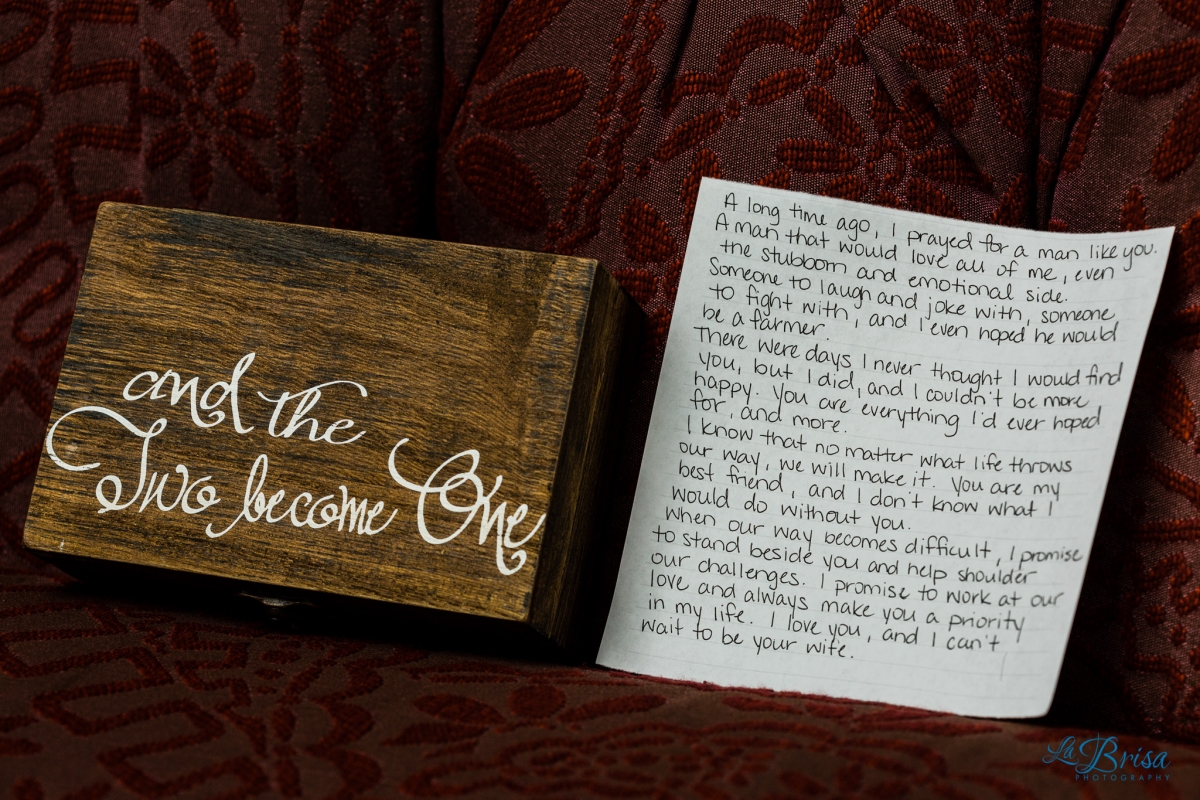 and the
Two become One
A long time ago, I prayed for a man like you.
A man that would love all of me, even
the stubborn and emotional side.
Someone to laugh and joke with, someone
to fight with, and I even hoped he would
be a farmer.
There were days I never thought I would find
you, but I did, and I couldn't be more
happy. You are everything I'd ever hoped
for, and more.
I know that no matter what life throws
our way, we will make it. You are my
best friend, and I don't know what I
would do without you.
When our way becomes difficult, I promise
to stand beside you and help shoulder
our challenges. I promise to work at our
love and always make you a priority
in my life. I love you, and I can't
wait to be your wife.
La Brisa
PHOTOGRAPHY